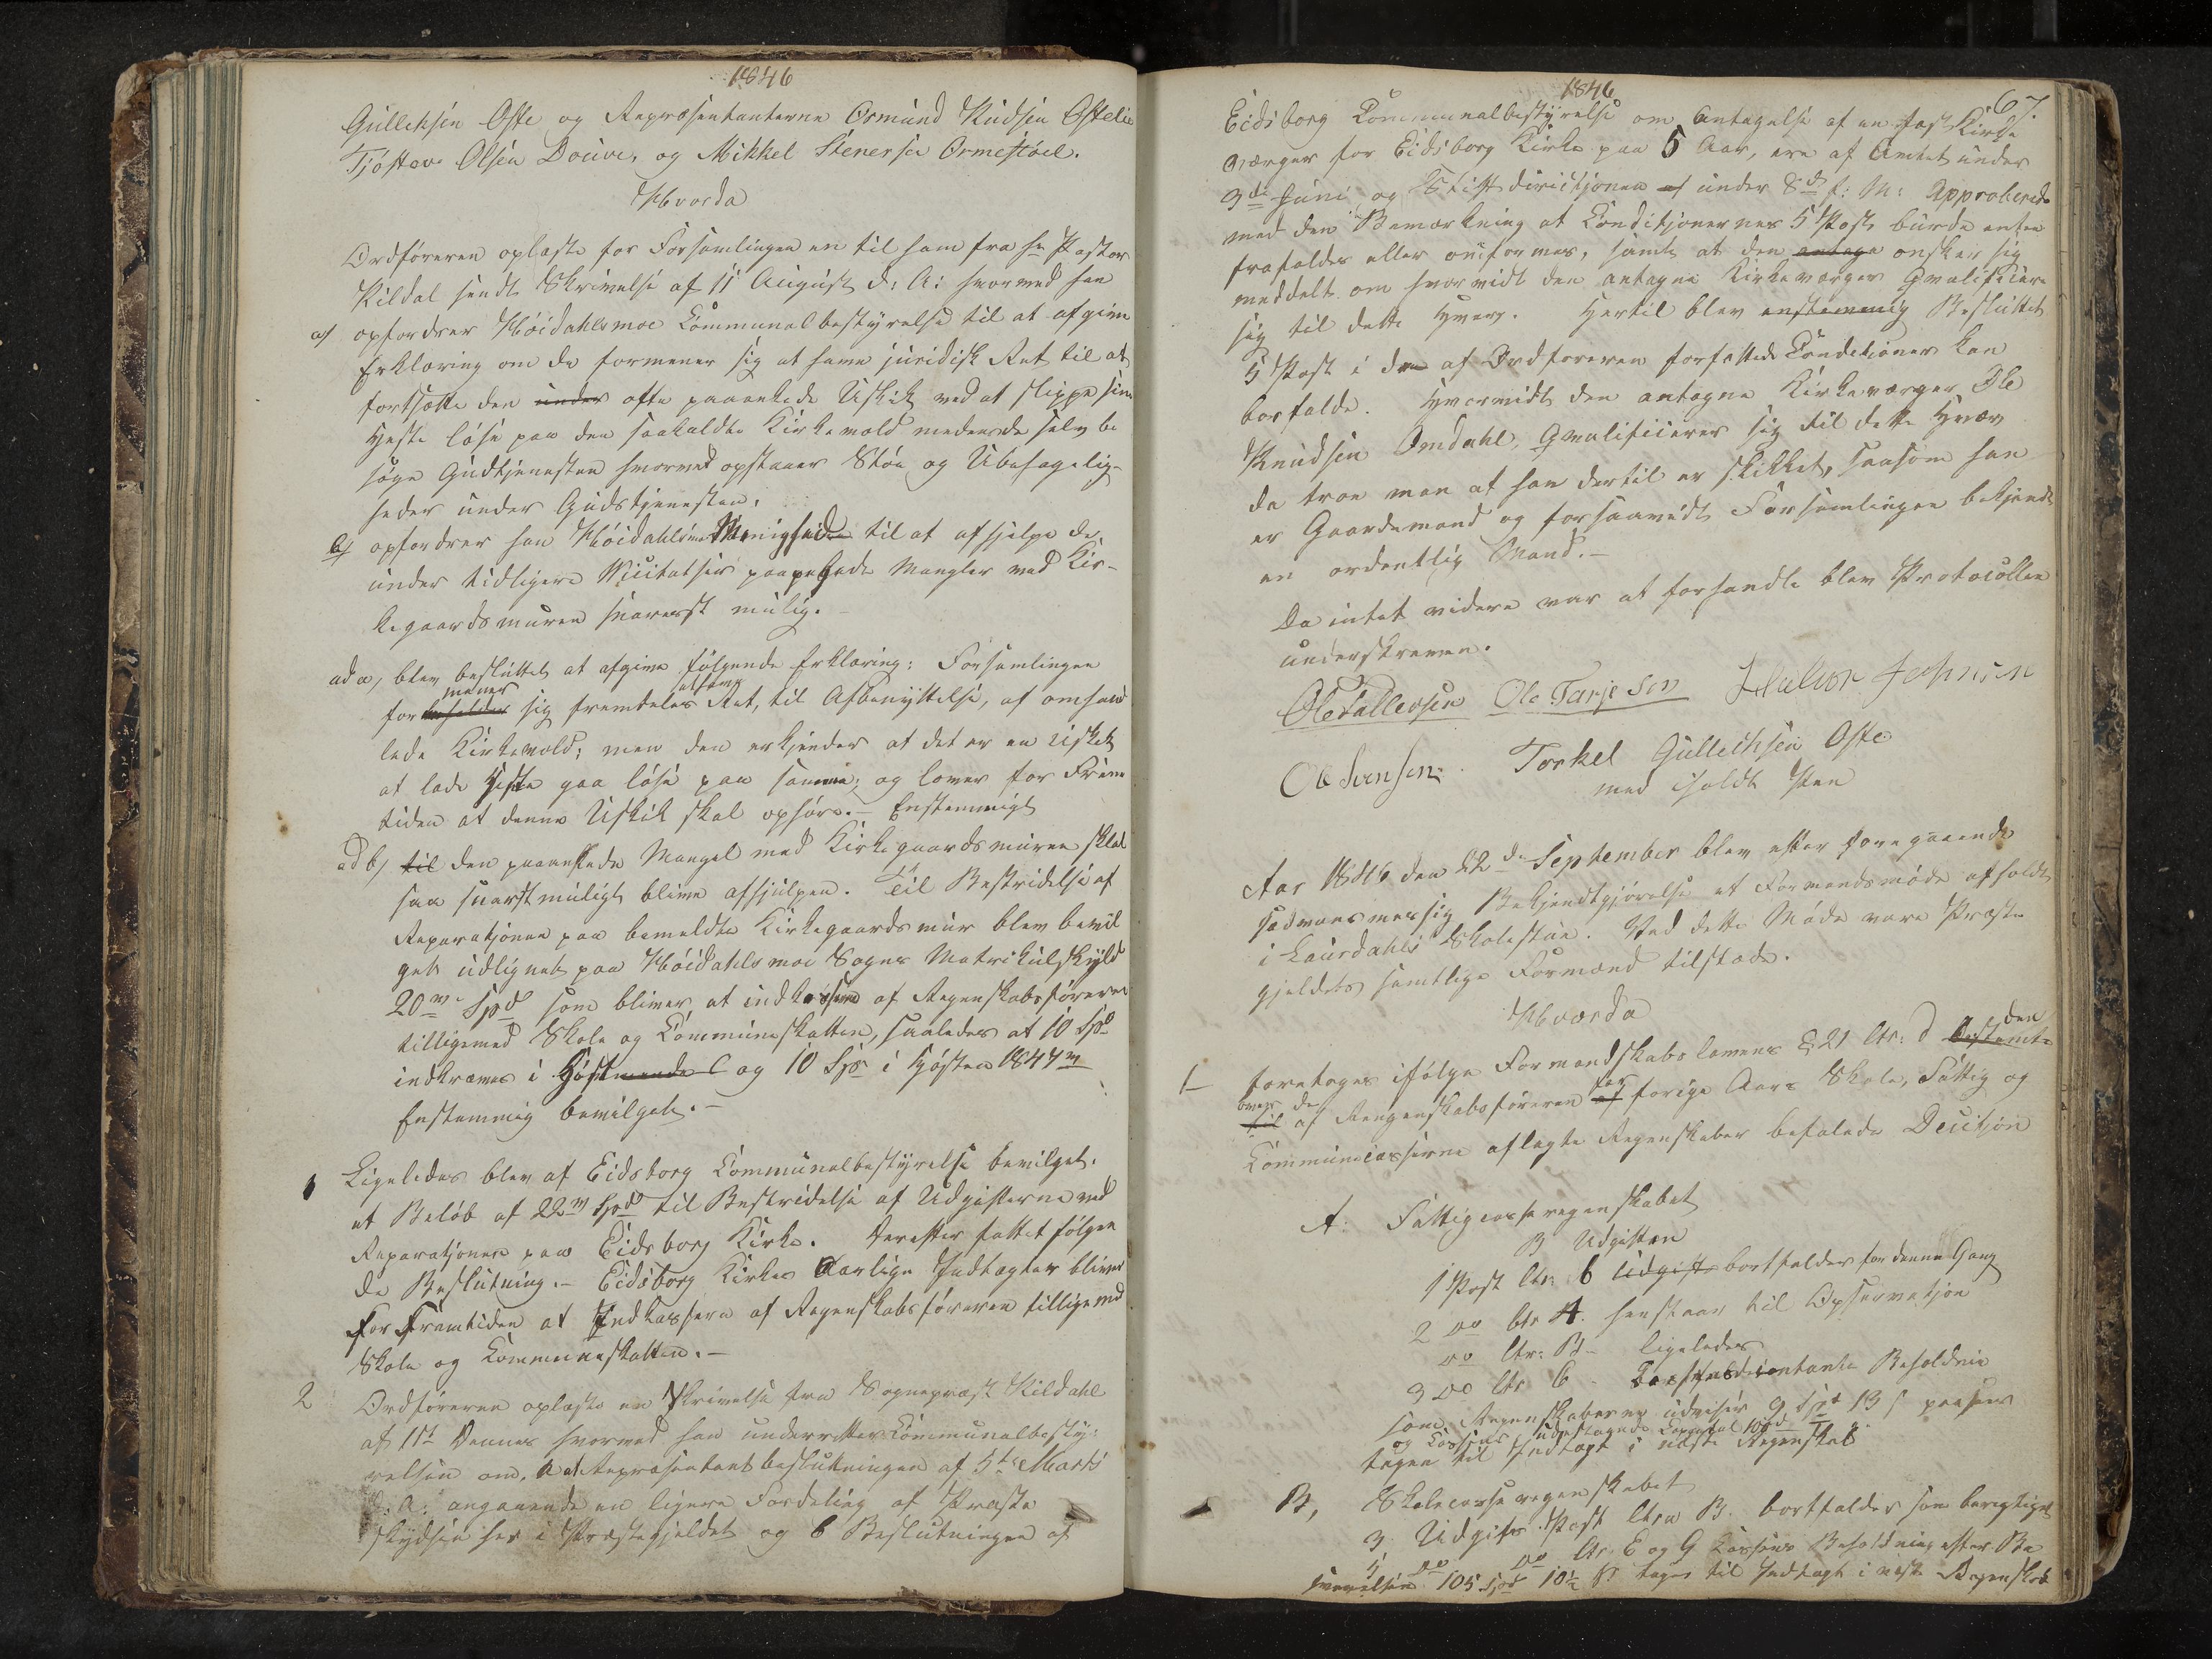 1846
Gullichsen Ofte og Repræsentanterne Ormund Knudsen Oftelie
Tjöstov Olsen Douve, og Mikkel Stenersen Ormestöel.
Hvorda
Ordföreren oplæste for Forsamlingen en til ham fra Hr Pastor
Kildal sendt Skrivelse af 11 August d: A: hvorved han
a) opfordrer Höidahlsmoe Communalbestyrelse til at afgive
Erklæring om de formener sig at have juridisk Ret til at
fortsætte den under ofte paaankede Uskik ved at slippe sine
Heste löse paa den saakaldte Kirkevold medens de selv be
söge Gudtjenesten hvorved opstaaer Stöi og Ubehagelig-
heder under Gudstjenesten.
b) opfordrer han Höidahlsmo Menighed til at afhjelpe de
under tidligere Visitatser paapegede Mangler ved Kir-
kegaardsmuren snarest mulig. -
ad a, blev besluttet at afgive fölgende Erklæring: Forsamlingen
mener at have
forbeholder sig fremdeles Ret, til Afbenyttelse, af omhand
lede Kirkevold; men den erkjender at det er en Uskik
at lade Heste gaa löse paa samme; og lover for Frem
tiden at denne Uskik skal ophöre. - Enstemmigt
ad b, til den paaankede Mangel med Kirkegaardsmuren skal
saa snarst muligt blive afhjulpen. Til Bestridelse af
Reparatjonen paa bemeldte Kirkegaardsmur blev bevil
get udlignet paa Höidahlsmoe Sogns Matrikulskyld
20ve Spd som bliver at indkassere af Regenskabsföreren
tilligemed Skole og Communeskatten, saaledes at 10 Spd
indkræves i Höst og 10 Spd i Hösten 1847
Enstemmig bevilget. -
1 Ligeledes blev af Eidsborg Communalbestyrelse bevilget.
et Belöb af 22 Spd til Bestridelse af Udgifterne ved
Reparatjonen paa Eidsborg Kirke. Derefter fattet fölgen
de Beslutning. - Eidsborg Kirkes Aarlige Indtægter bliver
for Fremtiden at Indkassere af Regenskabsföreren tilligemed
Skole og Communeskatten. -
2 Ordföreren oplæste en Skrivelse fra Sognepræst Kildahl
af 11te Dennes hvorved han underretter Communalbesty-
relsen om, a at Repræsentantbeslutningen af 5te Marts
d: A: angaaende en ligere Fordeling af Præste
skydsen her i Præstegjeldet og b Beslutningen af
1846
67.
Eidsborg Communalbestyrelse om Antagelse af en fast Kirke
værger for Eidsborg Kirke paa 5 Aar, ere af Amtet under
3die Juni og Stiftdirectjonen af under 8de f: M: Approberede
med den Bemærkning at Conditjonernes 5 Post burde enten
frafaldes eller omformes, samt at den antage önsker sig
meddelt om hvorvidt den antagne Kirkeværger Qvalificere
sig til dette Hverv. Hertil blev enstemmig Besluttet
5 Post i de af Ordföreren forfattede Conditioner kan
borfalde. Hvorvidt den antagne Kirkeværger Ole
Knudsen Omdahl, Qvalificerer sig til dette Hverv
da troe man at han dertil er skikket, saasom han
er Gaardemand og forsaavidt Forsamlingen bekjendt
en ordentlig Mand. -
Da intet videre var at forhandle blev Protocollen
underskreven.
Ole Tallevsen Ole Tarjesen Halvor Johnsen
Ole Svensen. Torkel Gullichsen Ofte
med iholdt Pen
Aar 1846 den 22de September blev efter foregaaende
Lovmæssig Bekjendtgjörelse et Formandsmöde afholdt
i Laurdahls Skolestue. Ved dette Möde vare Præste
gjeldets samtlige Formænd tilstæde.
Hvorda
den
1 foretages ifölge Formandskabslovens § 21 ltr: d bestemte
over de for
til af Rengenskabsföreren af forige Aars Skole, Fattig og
Communecasserne aflagte Regenskaber befalede Decitjon
A: Fattigcasseregenskabet
B Udgiften
1 Post ltr: b Udgift bortfalder for denne Gang
2 Do ltr A. henstaar til Opservatjon
Do ltr: B - ligeledes
3 Do ltr C - contante Beholdning
som Regenskaberne udviser 9 Spd 13 s
og Cassens Capital 100
tages til Indtægt i næste Regenskab
B, Skolecasseregenskabet
3. Udgifts Post ltra B. bortfalder som berigtiget
5 Do Do ltr. E og G Cassens Beholdning efter Be
svarelsen 105 Spd 10½ s tages til Indtægt i næste Regenskab